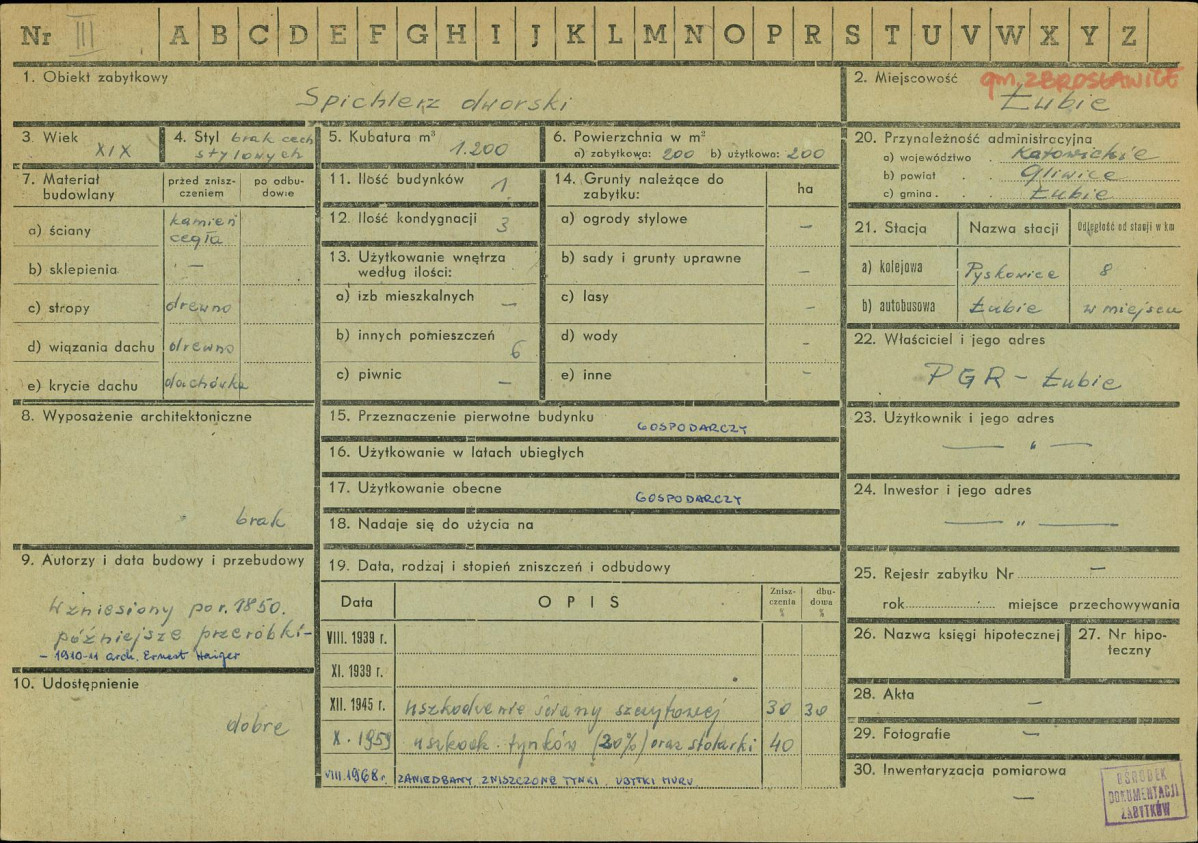 Nr III A B C D E F G H I J K L M N O P R S T U V W X Y Z
1. Obiekt zabytkowy
Spichlerz dworski
2. Miejscowość
gm. ZBROSŁAWICE
Łubie
3. Wiek
XIX
4. Styl brak cech
stylowych
5. Kubatura m³
1.200
6. Powierzchnia w m²
a) zabytkowa: 200 b) użytkowa: 200
7. Materiał
budowlany
przed znisz-
czeniem
po odbu-
dowie
a) ściany
kamień
cegła
b) sklepienia —
c) stropy drewno
d) wiązania dachu drewno
e) krycie dachu dachówka
8. Wyposażenie architektoniczne
brak
9. Autorzy i data budowy i przebudowy
Wzniesiony po r. 1850.
późniejsze przeróbki -
- 1910-11 arch. Ernest Haiger
10. Udostępnienie
dobre
11. Ilość budynków 1
12. Ilość kondygnacji 3
13. Użytkowanie wnętrza
według ilości:
a) izb mieszkalnych —
b) innych pomieszczeń
6
c) piwnic —
14. Grunty należące do
zabytku:
ha
a) ogrody stylowe —
b) sady i grunty uprawne —
c) lasy —
d) wody —
e) inne —
15. Przeznaczenie pierwotne budynku
GOSPODARCZY
16. Użytkowanie w latach ubiegłych
17. Użytkowanie obecne
GOSPODARCZY
18. Nadaje się do użycia na
19. Data, rodzaj i stopień zniszczeń i odbudowy
Data OPIS
Znisz-
czenia
%
dbu-
dowa
%
VIII. 1939 r.
XI. 1939 r.
XII. 1945 r. uszkodzenie ściany szczytowej 30 30
X. 1959 uszkodz. tynków (20%) oraz stolarki 40
VIII 1968 r. ZANIEDBANY ZNISZCZONE TYNKI, UBYTKI MURU
20. Przynależność administracyjna
a) województwo . Katowickie
b) powiat . . Gliwice
c) gmina . . Łubie
21. Stacja Nazwa stacji Odległość od stacji w km
a) kolejowa Pyskowice 8
b) autobusowa Łubie w miejscu
22. Właściciel i jego adres
PGR - Łubie
23. Użytkownik i jego adres
— " —
24. Inwestor i jego adres
— " —
25. Rejestr zabytku Nr —
rok miejsce przechowywania
26. Nazwa księgi hipotecznej
27. Nr hipo-
teczny
28. Akta —
29. Fotografie —
30. Inwentaryzacja pomiarowa
—
OŚRODEK
DOKUMENTACJI
ZABYTKÓW